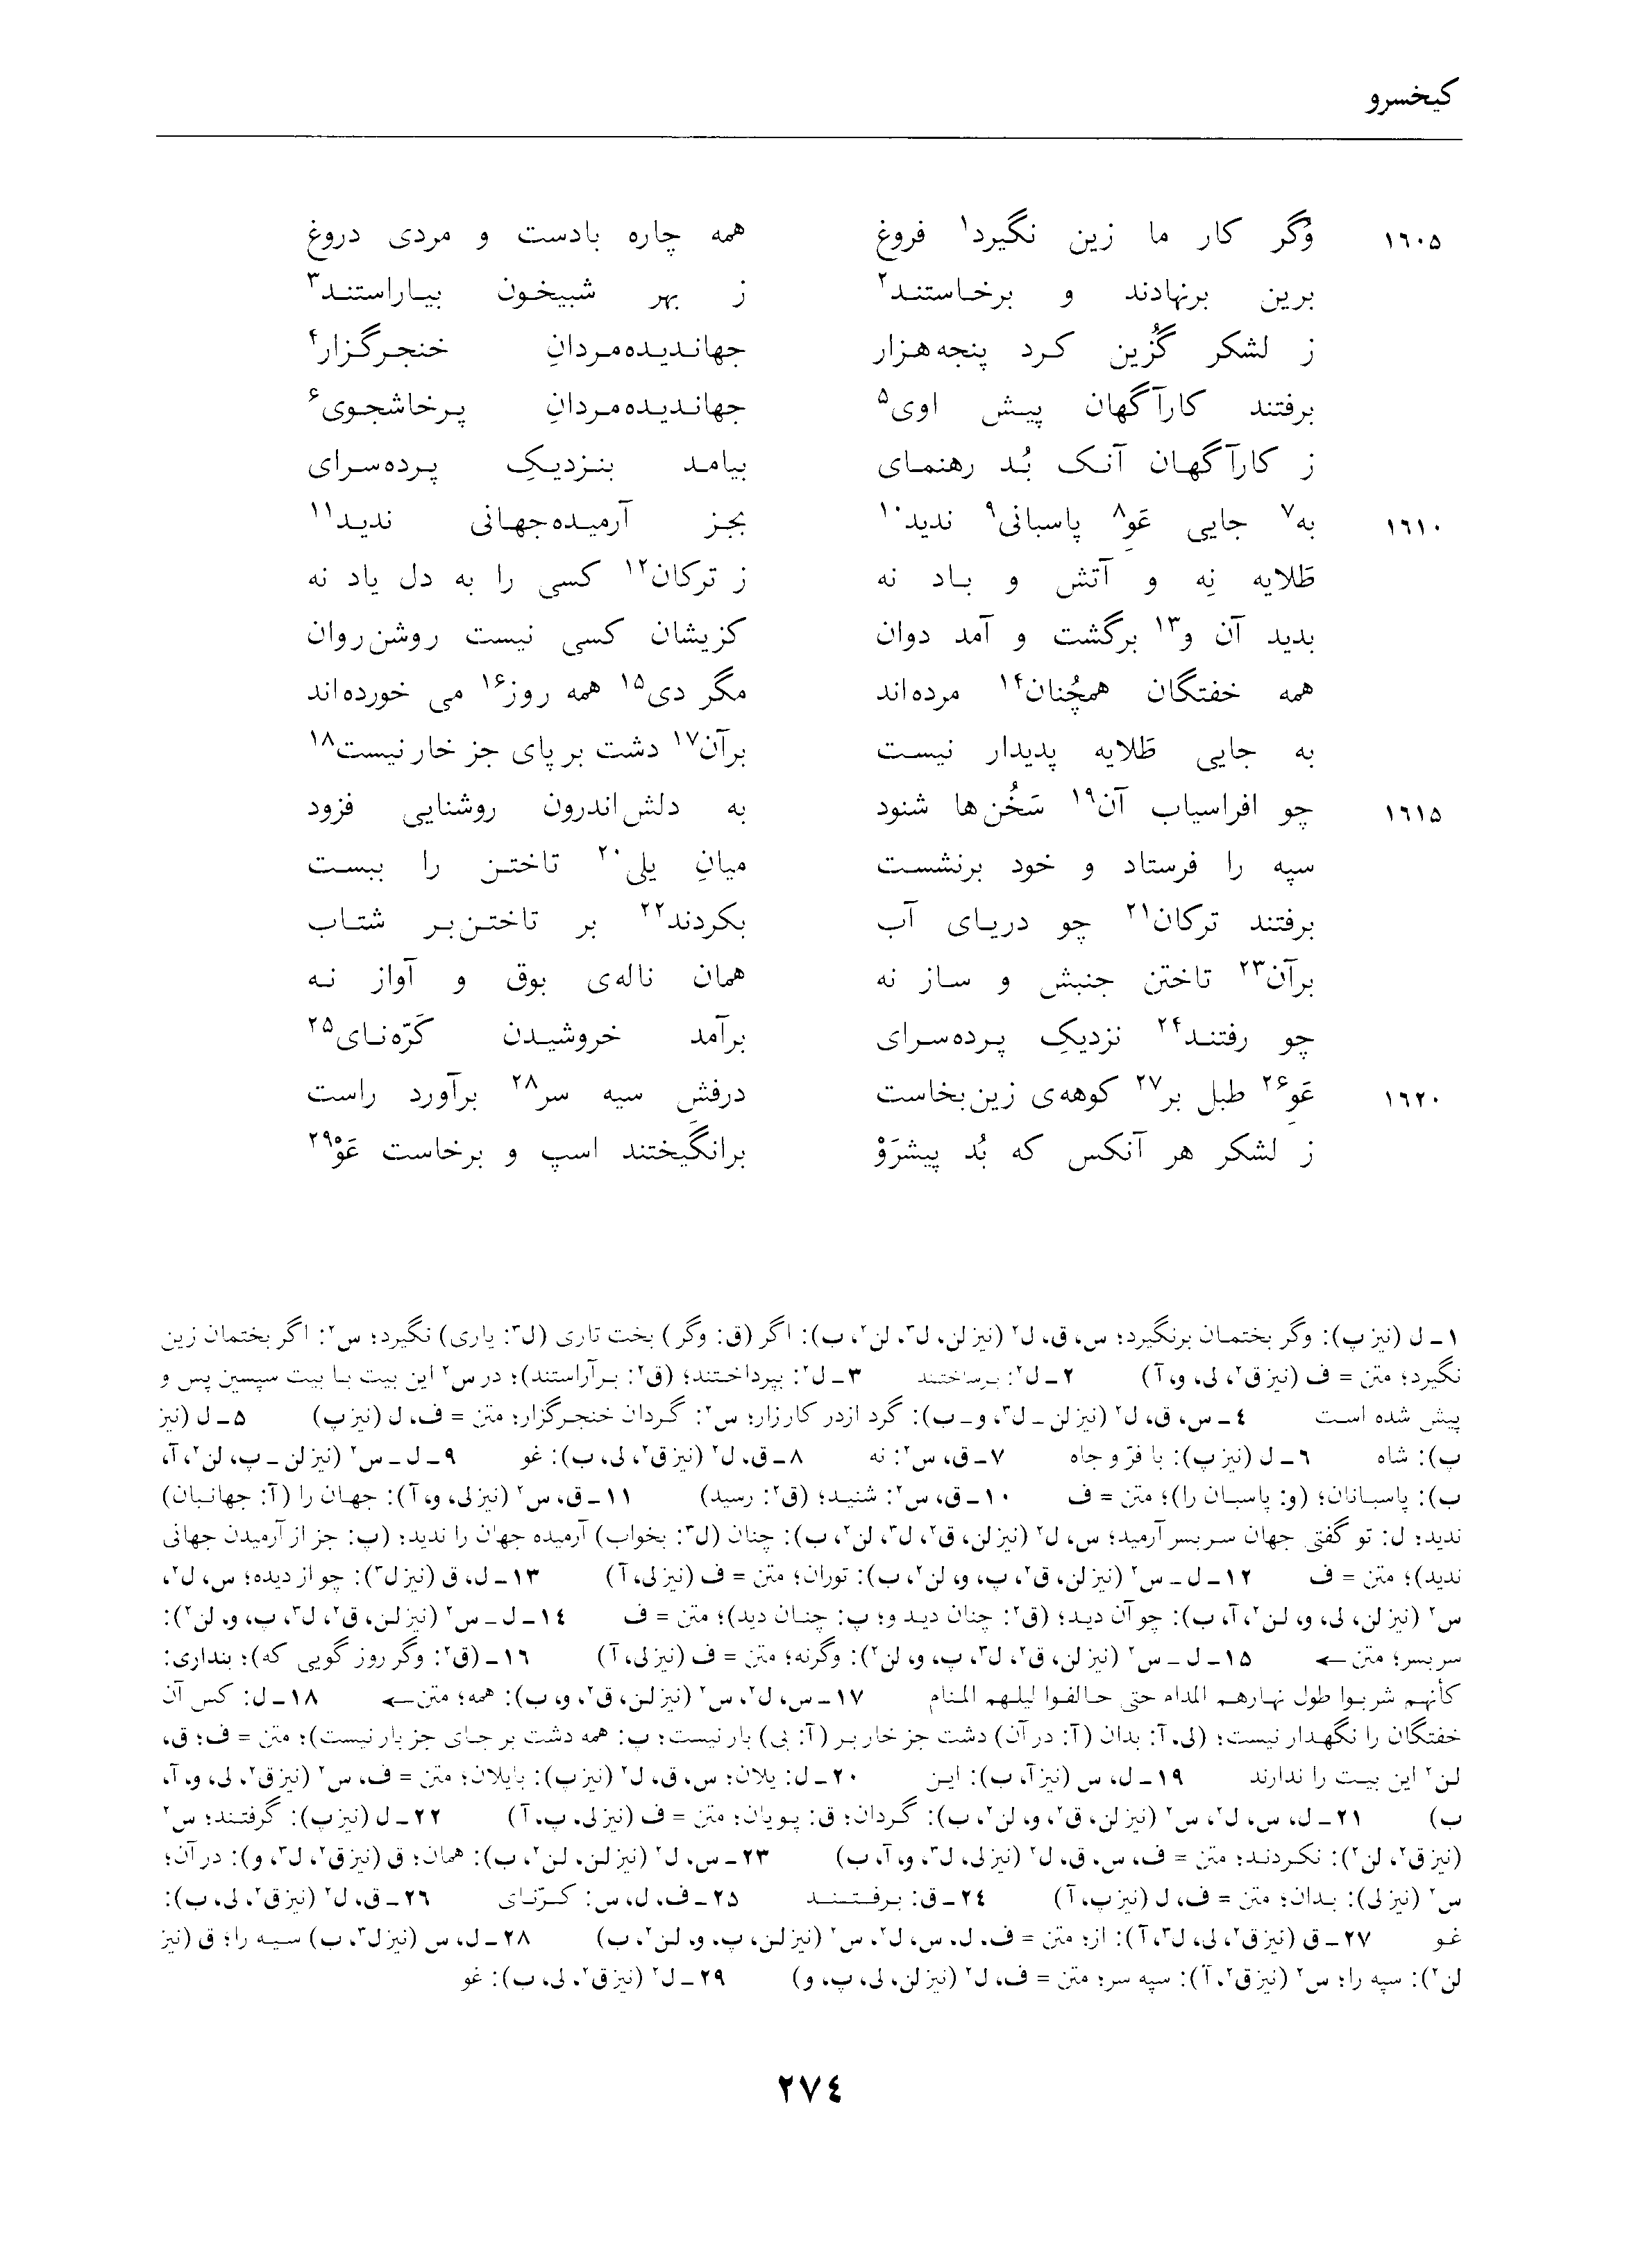 کیخسرو
۱۶۰۵ وُگر کار ما زین نگیرد۱ فروغ همه چاره بادست و مردی دروغ
برین برنهادند و برخاستند۲ ز بهر شبیخون بیاراستند۳
ز لشکر گُزین کرد پنجه‌هزار جهاندیده‌مردانِ خنجرگزار۴
برفتند کارآگهان پیش اوی۵ جهاندیده‌مردانِ پرخاشجوی۶
ز کارآگهان آنک بُد رهنمای بیامد بنزدیکِ پرده‌سرای
۱۶۱۰ به۷ جایی غَوِ۸ پاسبانی۹ ندید۱۰ بجز آرمیده‌جهانی ندید۱۱
طَلایه نِه و آتش و باد نه ز ترکان۱۲ کسی را به دل یاد نه
بدید آن و۱۳ برگشت و آمد دوان کزیشان کسی نیست روشن‌روان
همه خفتگان همچُنان۱۴ مرده‌اند مگر دی۱۵ همه روز۱۶ می خورده‌اند
به جایی طَلایه پدیدار نیست برآن۱۷ دشت بر پای جز خار نیست۱۸
۱۶۱۵ چو افراسیاب آن۱۹ سَخُن‌ها شنود به دلش‌اندرون روشنایی فزود
سپه را فرستاد و خود برنشست میانِ یلی۲۰ تاختن را ببست
برفتند ترکان۲۱ چو دریای آب بکردند۲۲ بر تاختن‌بر شتاب
برآن۲۳ تاختن جنبش و ساز نه همان ناله‌ی بوق و آواز نه
چو رفتند۲۴ نزدیکِ پرده‌سرای برآمد خروشیدن کَرّه‌نای۲۵
۱۶۲۰ غَوِ۲۶ طبل بر۲۷ کوهه‌ی زین‌بخاست درفشِ سیه سر۲۸ برآورد راست
ز لشکر هر آنکس که بُد پیشرَوْ برانگیختند اسپ و برخاست غَوْ۲۹
۱ـ ل (نیز پ): وگر بختمان برنگیرد؛ س، ق، ل۲ (نیز لن، ل۳، لن۲، ب): اگر (ق: وگر) بخت تاری (ل۳: یاری) نگیرد؛ س۲: اگر بختمان زین
نگیرد؛ متن = ف (نیز ق۲، لی، و، آ) ۲ـ ل۲: برساختند ۳ـ ل۲: بپرداختند؛ (ق۲: برآراستند)؛ در س۲ این بیت با بیت سپسین پس و
پیش شده است ۴ـ س، ق، ل۲ (نیز لن ـ ل۳، و ـ ب): گرد ازدر کارزار؛ س۲: گردان خنجرگزار؛ متن = ف، ل (نیز پ) ۵ـ ل (نیز
پ): شاه ۶ـ ل (نیز پ): با فرّ و جاه ۷ـ ق، س۲: نه ۸ـ ق، ل۲ (نیز ق۲، لی، ب): غو ۹ـ ل ـ س۲ (نیز لن ـ پ، لن۲، آ،
ب): پاسبانان؛ (و: پاسبان را)؛ متن = ف ۱۰ـ ق، س۲: شنید؛ (ق۲: رسید) ۱۱ـ ق، س۲ (نیز لی، و، آ): جهان را (آ: جهانبان)
ندید؛ ل: تو گفتی جهان سربسر آرمید؛ س، ل۲ (نیز لن، ق۲، ل۳، لن۲، ب): چنان (ل۳: بخواب) آرمیده جهان را ندید؛ (پ: جز از آرمیدن جهانی
ندید)؛ متن = ف ۱۲ـ ل ـ س۲ (نیز لن، ق۲، پ، و، لن۲، ب): توران؛ متن = ف (نیز لی، آ) ۱۳ـ ل، ق (نیز ل۳): چو از دیده؛ س، ل۲،
س۲ (نیز لن، لی، و، لن۲، آ، ب): چو آن دید؛ (ق۲: چنان دید و؛ پ: چنان دید)؛ متن = ف ۱۴ـ ل ـ س۲ (نیز لن، ق۲، ل۳، پ، و، لن۲):
سربسر؛ متن ← ۱۵ـ ل ـ س۲ (نیز لن، ق۲، ل۳، پ، و، لن۲): وگرنه؛ متن = ف (نیز لی، آ) ۱۶ـ (ق۲: وگر روز گویی که)؛ بنداری:
كأنهم شربوا طول نهارهم المدام حتى حالفوا ليلهم المنام ۱۷ـ س، ل۲، س۲ (نیز لن، ق۲، و، ب): همه؛ متن← ۱۸ـ ل: کس آن
خفتگان را نگهدار نیست؛ (لی، آ: بدان (آ: در آن) دشت جز خار بر (آ: بی) بار نیست؛ پ: همه دشت بر جای جز بار نیست)؛ متن = ف؛ ق،
لن۲ این بیت را ندارند ۱۹ـ ل، س (نیز آ، ب): این ۲۰ـ ل: یلان؛ س، ق، ل۲ (نیز پ): بایلان؛ متن = ف، س۲ (نیز ق۲، لی، و، آ،
ب) ۲۱ـ ل، س، ل۲، س۲ (نیز لن، ق۲، و، لن۲، ب): گردان؛ ق: پویان؛ متن = ف (نیز لی، پ، آ) ۲۲ـ ل (نیز پ): گرفتند؛ س۲
(نیز ق۲، لن۲): نکردند؛ متن = ف، س، ق، ل۲ (نیز لی، ل۳، و، آ، ب) ۲۳ـ س، ل۲ (نیز لن، لن۲، ب): همان؛ ق (نیز ق۲، ل۳، و): در آن؛
س۲ (نیز لی): بدان؛ متن = ف، ل (نیز پ، آ) ۲۴ـ ق: برفتند ۲۵ـ ف، ل، س: کرّنای ۲۶ـ ق، ل۲ (نیز ق۲، لی، ب):
غو ۲۷ـ ق (نیز ق۲، لی، ل۳، آ): از؛ متن = ف، ل، س، ل۲، س۲ (نیز لن، پ، و، لن۲، ب) ۲۸ـ ل، س (نیز ل۳، ب) سیه را؛ ق (نیز
لن۲): سپه را؛ س۲ (نیز ق۲، آ): سپه سر؛ متن = ف، ل۲ (نیز لن، لی، پ، و) ۲۹ـ ل۲ (نیز ق۲، لی، ب): غو
۲۷۴